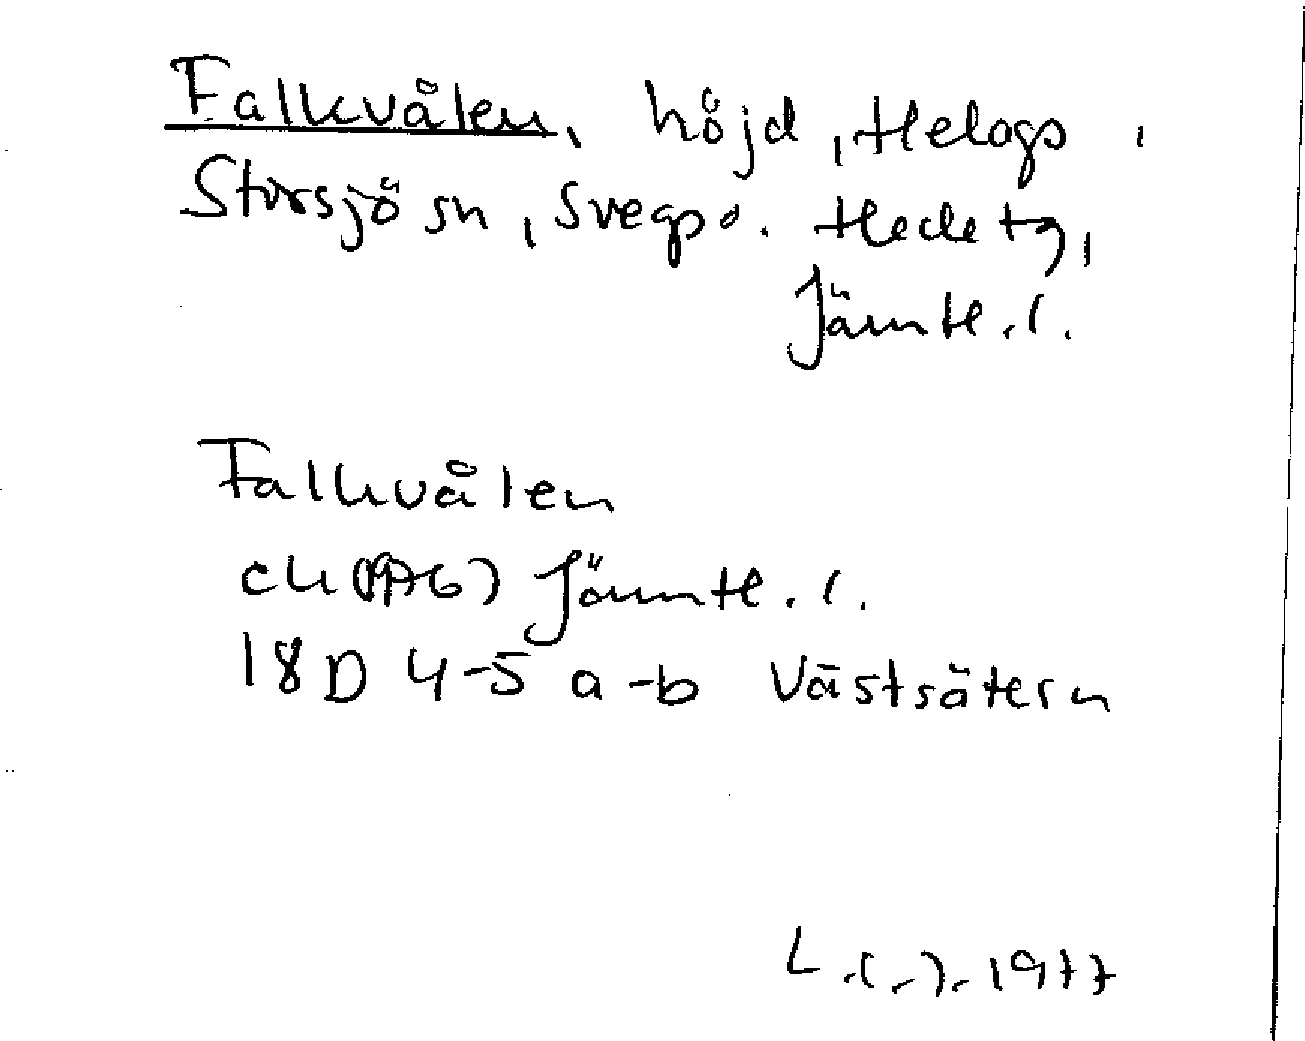 Falkvålen, höjd, Helags,
Storsjö sn, Svegs o. Hede tg,
Jämtl. l.
Falkvålen
ek (1976) Jämtl. l.
18D 4-5 a-b Västsätern
L. (-). 1977